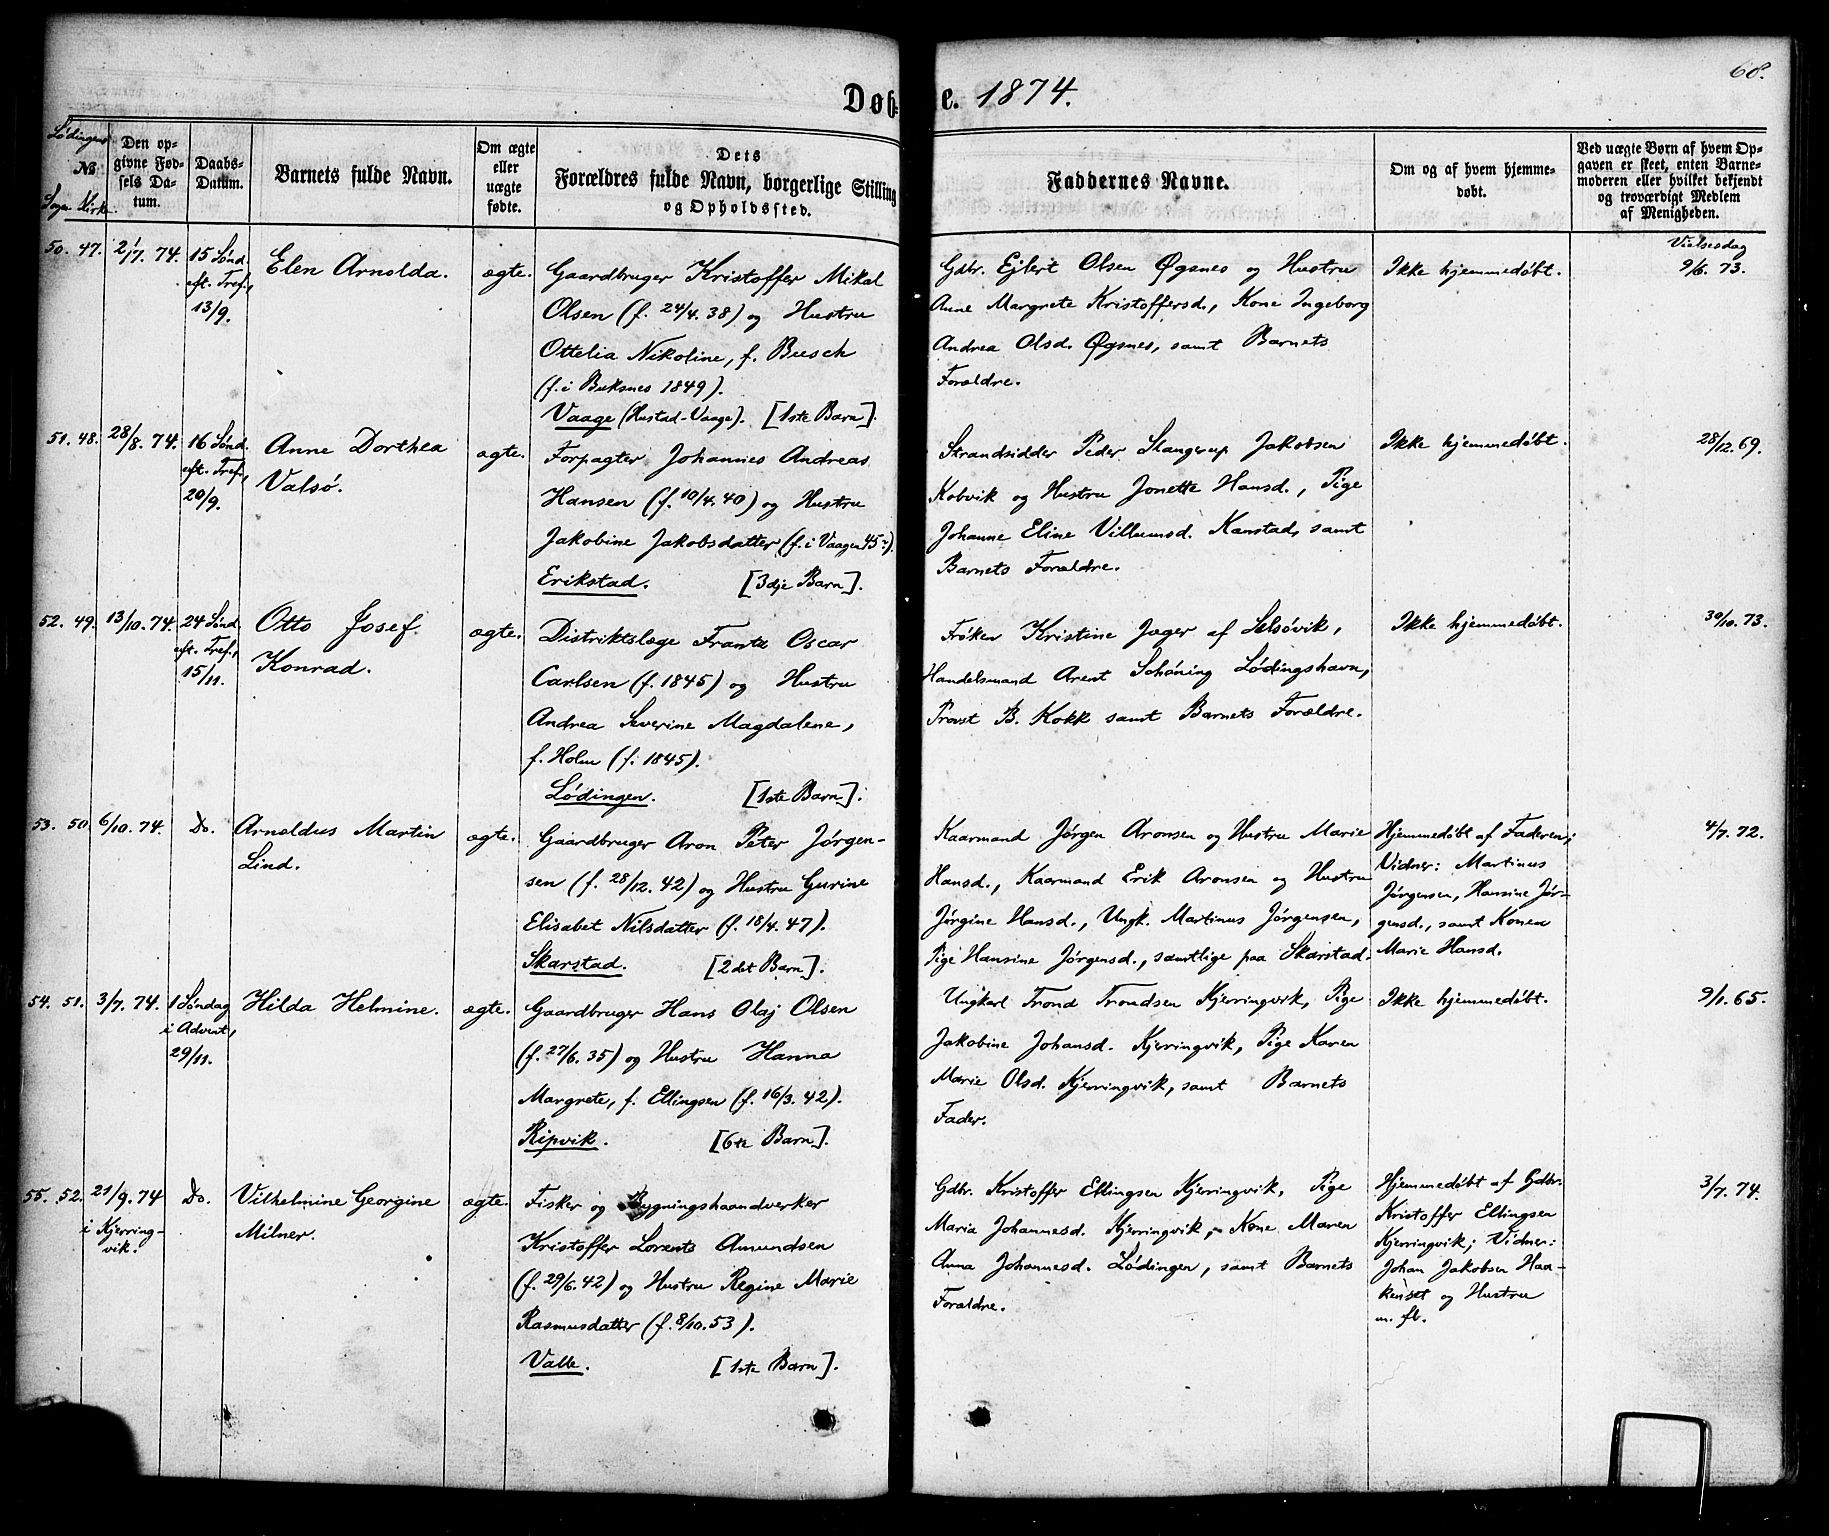 68.
Døb- e. 1874.
Lødingens
No
Sogn Kirke.
Den op-
givne Fød-
sels Da-
tum.
Daabs-
Datum.
Barnets fulde Navn.
Om ægte
eller
uægte
fødte.
Dets
Forældres fulde Navn, borgerlige Stilling
og Opholdssted.
Faddernes Navne.
Om og af hvem hjemme-
døbt.
Ved uægte Børn af hvem Op-
gaven er skeet, enten Barne-
moderen eller hvilket bekjendt
og troværdigt Medlem
af Menigheden.
50. 47.
2/7. 74.
15 Sønd.
eft. Tref.,
13/9.
Elen Arnolda.
ægte.
Gaardbruger Kristoffer Mikal
Olsen (f. 24/4. 38) og Hustru
Ottelia Nikoline, f. Busch
(f. i Buksnes 1849).
Vaage (Hustad-Vaage). [1ste Barn].
Gdbr. Ejlert Olsen Øgsnes og Hustru
Anne Margrete Kristoffersd., Kone Ingeborg
Andrea Olsd. Øgsnes, samt Barnets
Forældre.
Ikke hjemmedøbt.
Vielsesdag
9/6. 73.
51. 48.
28/8. 74.
16 Sønd.
eft. Tref.,
20/9.
Anne Dorthea
Valsø.
ægte.
Forpagter Johannes Andreas
Hansen (f. 10/4. 40) og Hustru
Jakobine Jakobsdatter (f. i Vaagen 45?)
Erikstad. [3dje Barn].
Strandsidder Peder Slangerup Jakobsen
Kobvik og Hustru Jonette Hansd., Pige
Johanne Eline Villumsd. Kanstad, samt
Barnets Forældre.
Ikke hjemmedøbt.
28/12. 69.
52. 49.
13/10. 74.
24 Sønd.
eft. Tref.,
15/11.
Otto Josef
Konrad.
ægte.
Distriktslæge Frantz Oscar
Carlsen (f. 1845) og Hustru
Andrea Severine Magdalene,
f. Holm (f. 1845).
Lødingen. [1ste Barn].
Frøken Kristine Jæger af Selsøvik,
Handelsmand Arent Schøning Lødingshavn,
Provst B. Kokk samt Barnets Forældre.
Ikke hjemmedøbt.
30/10. 73.
53. 50.
6/10. 74.
Do.
Arnoldus Martin
Lind.
ægte.
Gaardbruger Aron Peter Jørgen-
sen (f. 28/12. 42) og Hustru Gurine
Elisabet Nilsdatter (f. 18/4. 47).
Skarstad. [2det Barn].
Kaarmand Jørgen Aronsen og Hustru Marie
Hansd., Kaarmand Erik Aronsen og Hustru
Jørgine Hansd., Ungk. Martinus Jørgensen,
Pige Hansine Jørgensd., samtlige paa Skarstad.
Hjemmedøbt af Faderen;
Vidner: Martinus
Jørgensen, Hansine Jør-
gensd., samt Konen
Marie Hansd.
4/7. 72.
54. 51.
3/7. 74.
1 Søndag
i Advent,
29/11.
Hilda Helmine.
ægte.
Gaardbruger Hans Olaj Olsen
(f. 27/6. 35) og Hustru Hanna
Margrete, f. Ellingsen (f. 16/3. 42).
Ripvik. [6te Barn].
Ungkarl Trond Trondsen Kjerringvik, Pige
Jakobine Johansd. Kjerringvik, Pige Karen
Marie Olsd. Kjerringvik, samt Barnets
Fader.
Ikke hjemmedøbt.
9/1. 65.
55. 52.
21/9. 74
i Kjerring-
vik.
Do.
Vilhelmine Georgine
Milner.
ægte.
Fisker og Bygningshaandverker
Kristoffer Lorents Amundsen
(f. 29/6. 42) og Hustru Regine Marie
Rasmusdatter (f. 8/10. 53).
Valle. [1ste Barn].
Gdbr. Kristoffer Ellingsen Kjerringvik, Pige
Maria Johannesd. Kjerringvik, Kone Maren
Anna Johannesd. Lødingen, samt Barnets
Forældre.
Hjemmedøbt af Gdbr.
Kristoffer Ellingsen
Kjerringvik; Vidner:
Johan Jakobsen Haa-
kenset og Hustru
m. fl.
3/7. 74.